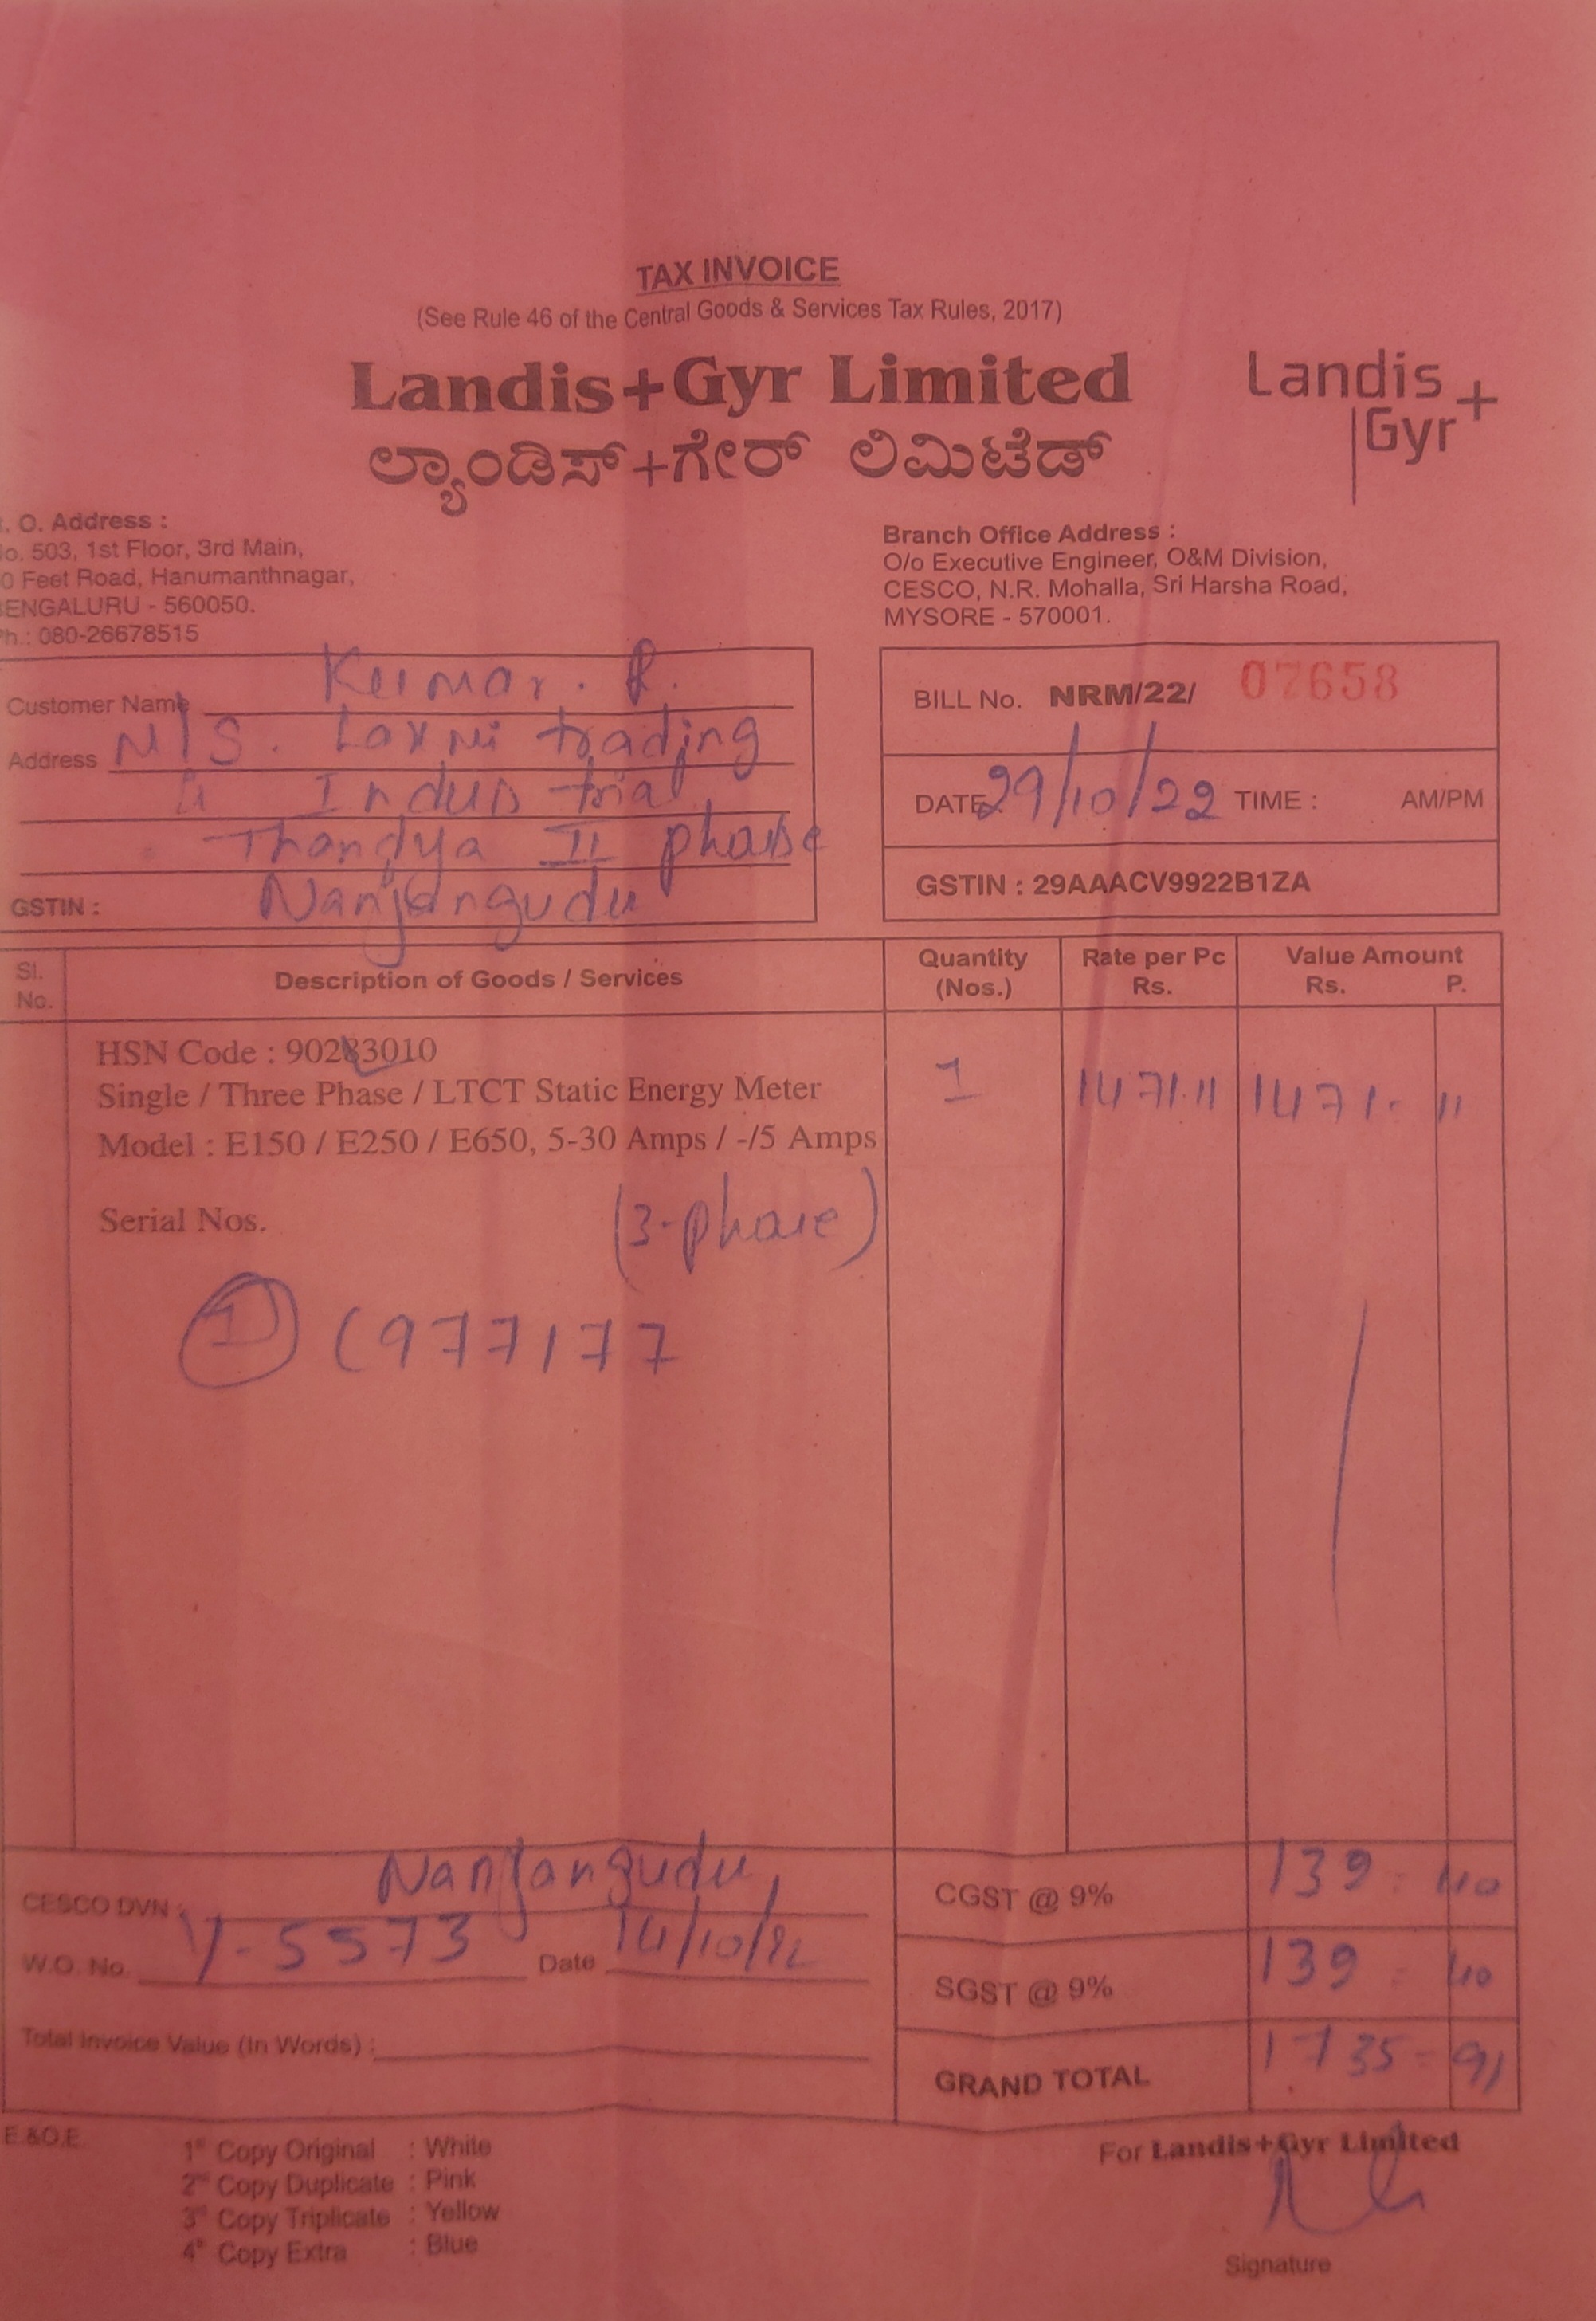 TAX INVOICE
(See Rule 46 of the Central Goods & Services Tax Rules, 2017)
Landis+Gyr Limited
ಲ್ಯಾಂಡಿಸ್+ಗೇರ್ ಲಿಮಿಟೆಡ್
Landis+
Gyr
. O. Address :
o. 503, 1st Floor, 3rd Main,
0 Feet Road, Hanumanthnagar,
ENGALURU - 560050.
Ph.: 080-26678515
Branch Office Address :
O/o Executive Engineer, O&M Division,
CESCO, N.R. Mohalla, Sri Harsha Road,
MYSORE - 570001.
Customer Name Kumar. R.
Address M/S. Laxmi trading
Industrial
Thandya II phase
GSTIN : Nanjangudu
BILL No. NRM/22/ 07658
DATE: 29/10/22 TIME : AM/PM
GSTIN : 29AAACV9922B1ZA
Sl. No. Description of Goods / Services Quantity (Nos.) Rate per Pc Rs. Value Amount Rs. P.
HSN Code : 90283010
Single / Three Phase / LTCT Static Energy Meter 1 1471.11 1471. 11
Model : E150 / E250 / E650, 5-30 Amps / -/5 Amps
Serial Nos. (3-phase)
1 (977177
CESCO DVN : Nanjangudu,
W.O. No. Y-5573 Date 14/10/22
Total Invoice Value (In Words) :
CGST @ 9% 139 - 40
SGST @ 9% 139 - 40
GRAND TOTAL 1735 - 91
E.&O.E.
1st Copy Original : White
2nd Copy Duplicate : Pink
3rd Copy Triplicate : Yellow
4th Copy Extra : Blue
For Landis+Gyr Limited
Signature